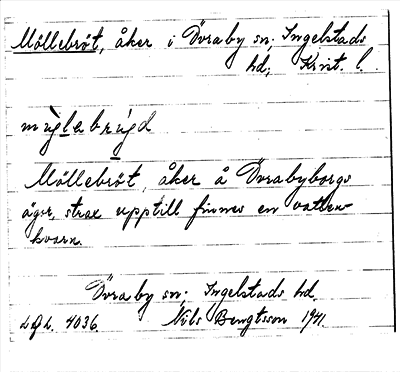 Möllebröt, åker i Övraby sn; Ingelstads
hd, Krist l.
Möllebröt, åker å Övrabyborgs
ägor, strax upptill finnes en vatten-
kvarn.
Övraby sn; Ingelstads hd.
4036. Nils Bengtsson 1941.